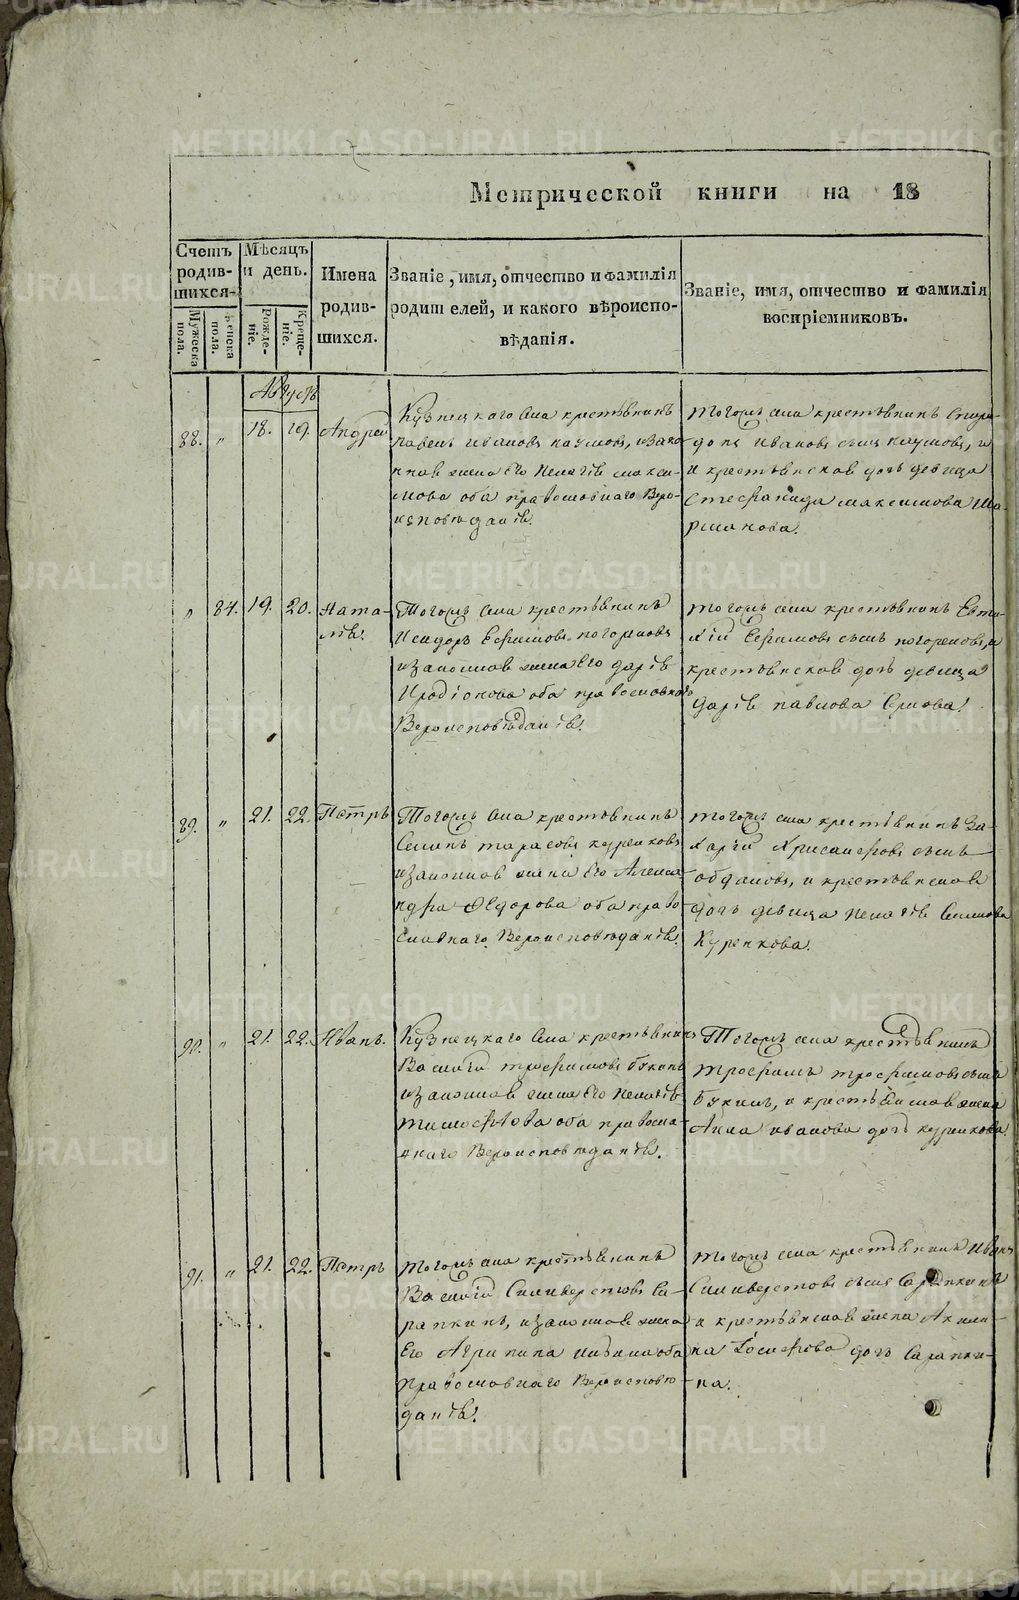 METRIKI.GASO-URAL.RU
Метрической книги на 18
Счетъ родив-шихся.
Мужеска пола.
Женска пола.
Мѣсяцъ и день.
Рожде-ніе.
Креще-ніе.
Имена родив-шихся.
Званіе, имя, отчество и фамилія родителей, и какого вѣроиспо-вѣданія.
Званіе, имя, отчество и фамилія воспріемниковъ.
Августъ
88. " 18. 19. Андрей
Кузнецкаго села крестьянинъ
Павелъ Ивановъ Наумовъ, и зако
нная жена его Пелагія Макси-
мова оба православнаго Веро-
исповѣданія.
Тогожъ села крестьянинъ Спири-
донъ Ивановъ сынъ Наумовъ, и
и крестьянская дочь девица
Стефанида Максимова
" 84. 19. 20. Ната-
лія.
Тогожъ села крестьянинъ
Исидоръ Ефимовъ
и законная жена его Дарія
Иродіонова оба православнаго
Вероисповѣданія.
Тогожъ села крестьянинъ Евти-
хій Ефимовъ сынъ
крестьянская дочь девица
Дарія Павлова
89. " 21. 22. Петръ
Тогожъ села крестьянинъ
Тарасовъ Куренковъ
и законная жена его Алекса-
ндра Федорова оба право
славнаго Вероисповѣданія.
Тогожъ села крестьянинъ За-
харій Хрисанфовъ сынъ
и крестьянская
дочь девица Пелагія
Куренкова.
90. " 21. 22. Иванъ.
Кузнецкаго села крестьянинъ
Василій Трофимовъ Букинъ
и законная жена его Пелагія
Тимофѣева оба правосла-
внаго Вероисповѣданія.
Тогожъ села крестьянинъ
Трофимъ Трофимовъ сынъ
Букинъ, и крестьянская жена
Анна Иванова дочь Куренкова
91. " 21. 22. Петръ
Тогожъ села крестьянинъ
Василій Силиверстовъ Са-
рапкинъ, и законная жена
Его Агрипина оба
православнаго Вероисповѣ-
данія.
Тогожъ села крестьянинъ Иванъ
Силиверстовъ сынъ Сарапкинъ
и крестьянская жена Акили-
на Іосифова дочь Сарапки-
на.